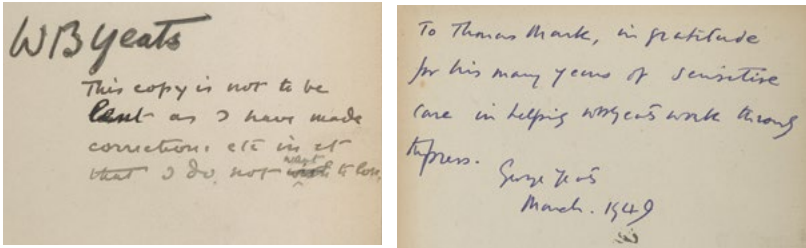 WB Yeats
This copy is not to be
lent as I have made
corrections etc in it
that I do not want to lose.
To Thomas Mark, in gratitude
for his many years of sensitive
care in helping WBYeats work through
the press.
George Yeats
March. 1949